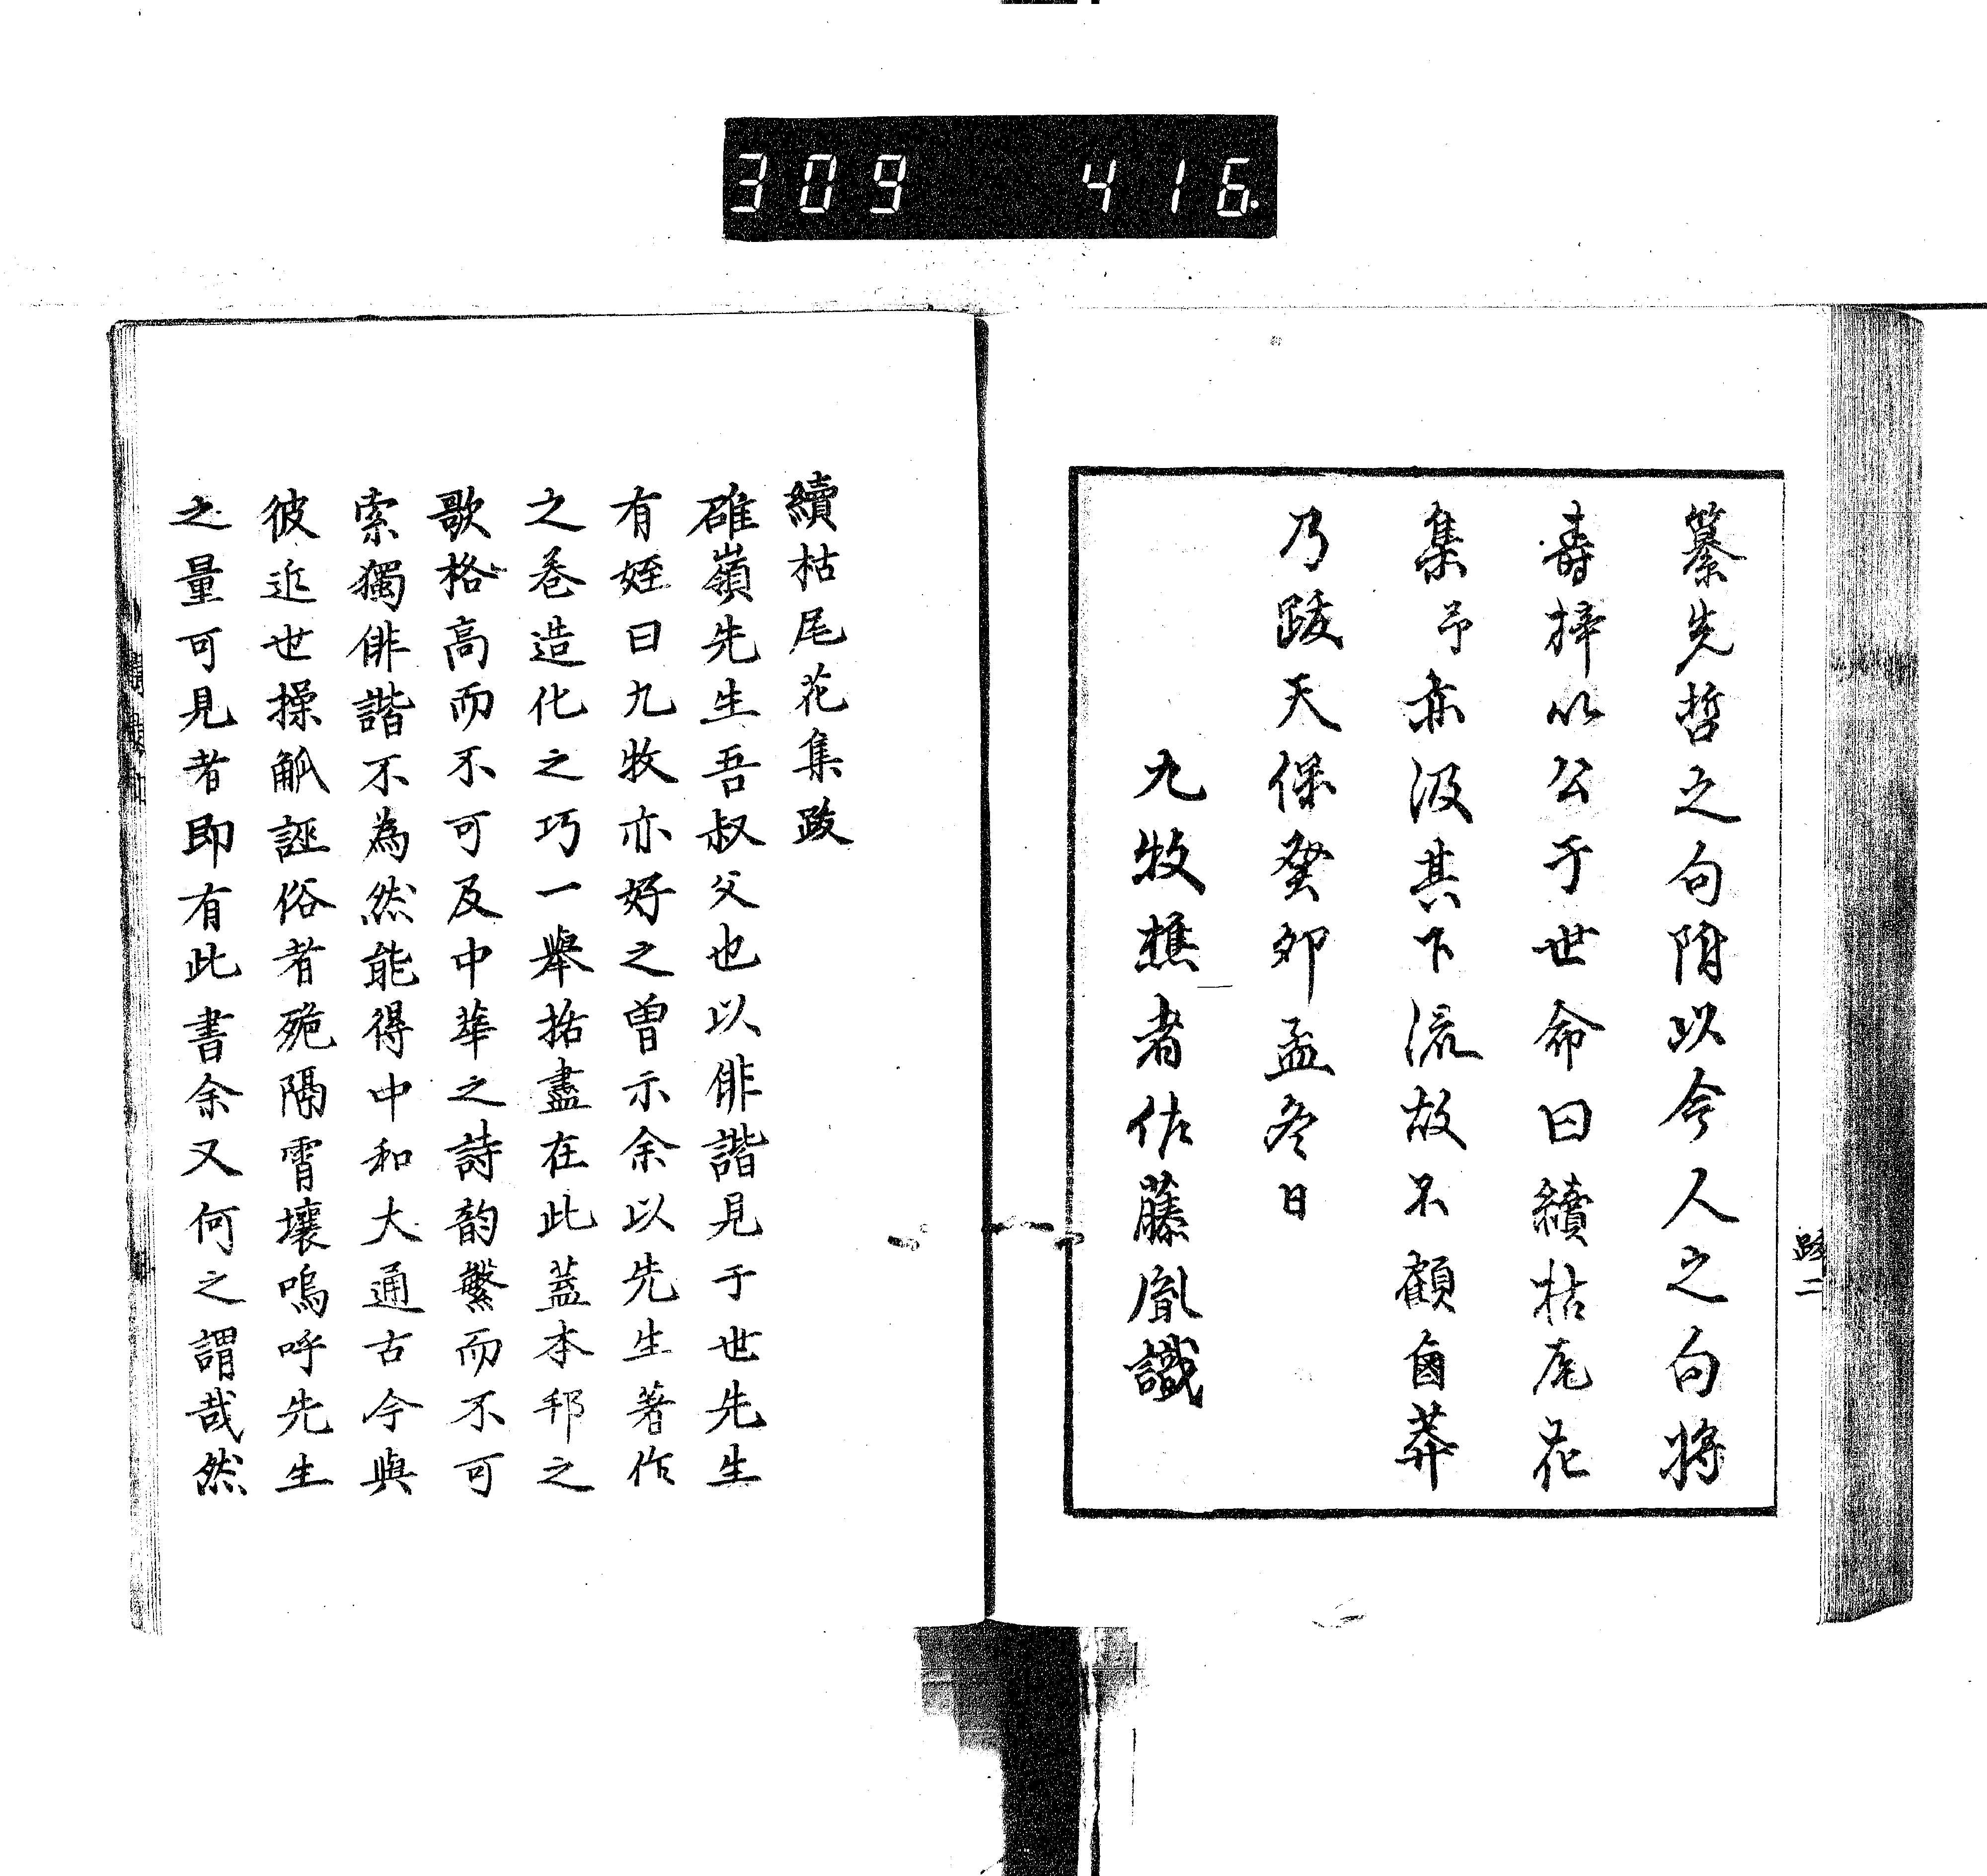 309 416
纂先哲之句附以今人之句将
壽梓以公于世命曰續枯尾花
集予亦汲其下流故不顧鹵莽
乃跋天保癸卯孟冬日
九牧樵者佐藤胤識
跋二
續枯尾花集跋
碓嶺先生吾叔父也以俳諧見于世先生
有姪曰九牧亦好之曽示余以先生著作
之卷造化之巧一舉拈盡在此蓋本邦之
歌格高而不可及中華之詩韵繁而不可
索獨俳諧不為然能得中和大通古今與
彼近世操觚誣俗者夐隔霄壤嗚呼先生
之量可見者即有此書余又何之謂哉然